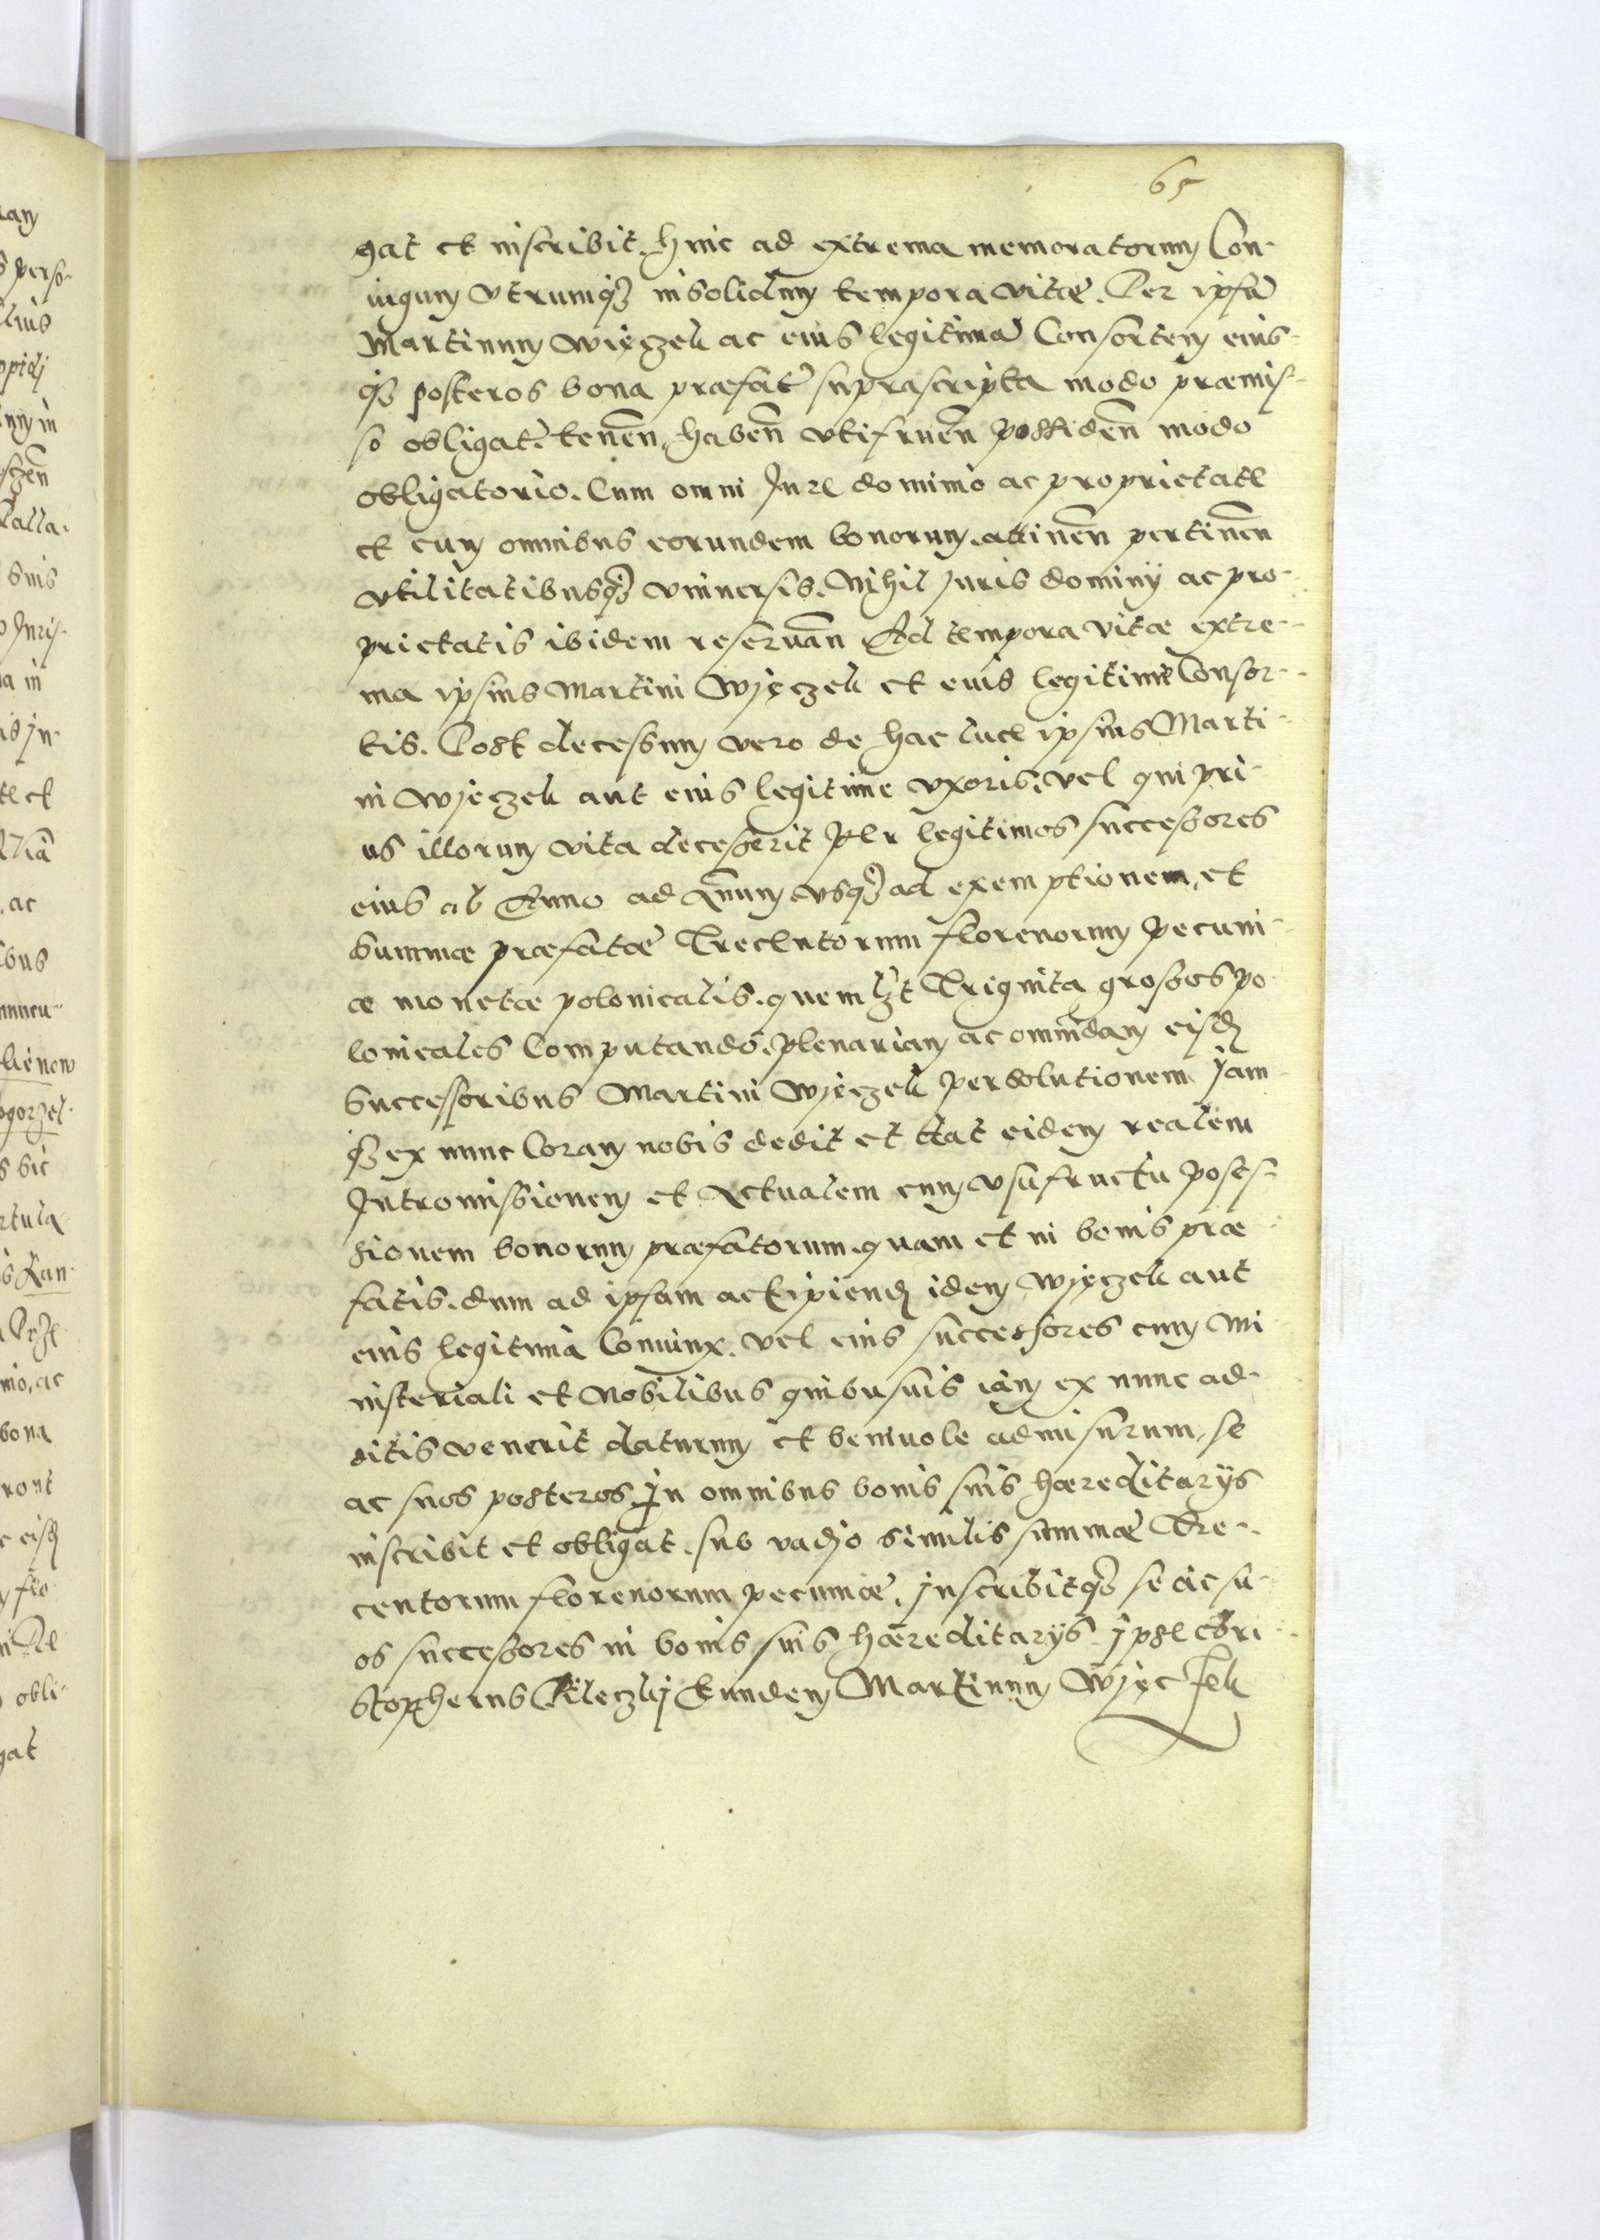 65
gat et inscribit. hinc ad extrema memoratorum Con-
iugum vtrumq3 insolidum tempora vitæ. Per ipsũ
Martinum Więczek ac eius legitimã Consortem eius-
q3 posteros bona præfat suprascripta modo præmis-
so obligat. tenen̄. haben̄ vtifruen̄ possiden̄ modo
obligatorio. Cum omni Jure dominio ac proprietate
et cum omnibus eorundem bonorum. attinen̄ pertinen̄
vtilitatibusq3 vniuersis. Nihil Juris dominÿ ac pro-
prietatis ibidem reseruan̄ Ad tempora vitæ extre-
ma ipsius Martini Więczek et euis legitimæ Consor-
tis. Post decessum vero de hac luce ipsius Marti-
ni Więczek aut eius legitime vxoris. vel qui pri-
us illorum vita decesserit per legitimos successores
eius ab Anno ad Annum vsq3 ad exemptionem, et
summæ præfatæ Trecentorum florenorum pecuni-
æ monetæ polonicalis. quemlȝt Triginta grossos po-
lonicales Computando. plenariam ac omnīdam eisd
successoribus Martini Więczek persolutionem jam-
q3 ex nunc Coram nobis dedit et dat eidem realem
Intromissionem et Actualem cum vsufructu poses-
sionem bonorum præfatorum. quam et in bonis præ
fatis. dum ad ipsam accipiend idem Więczek aut
eius legitima Coniunx. vel eius successores cum Mi
nisteriali et Nobilibus quibusuis iam ex nunc ad-
ditis venerit daturum et beniuole admisurum, se
ac suos posteros. Jn omnibus bonis suis hæreditarÿs
inscribit et obligat. sub vadio similis summæ Tre-
centorum florenorum pecuniæ. Jnscribitq3 se ac su-
os successores in bonis suis hæreditarÿs. jpse Chri
stopherus Kleczkj Eundem Martinum Więczek